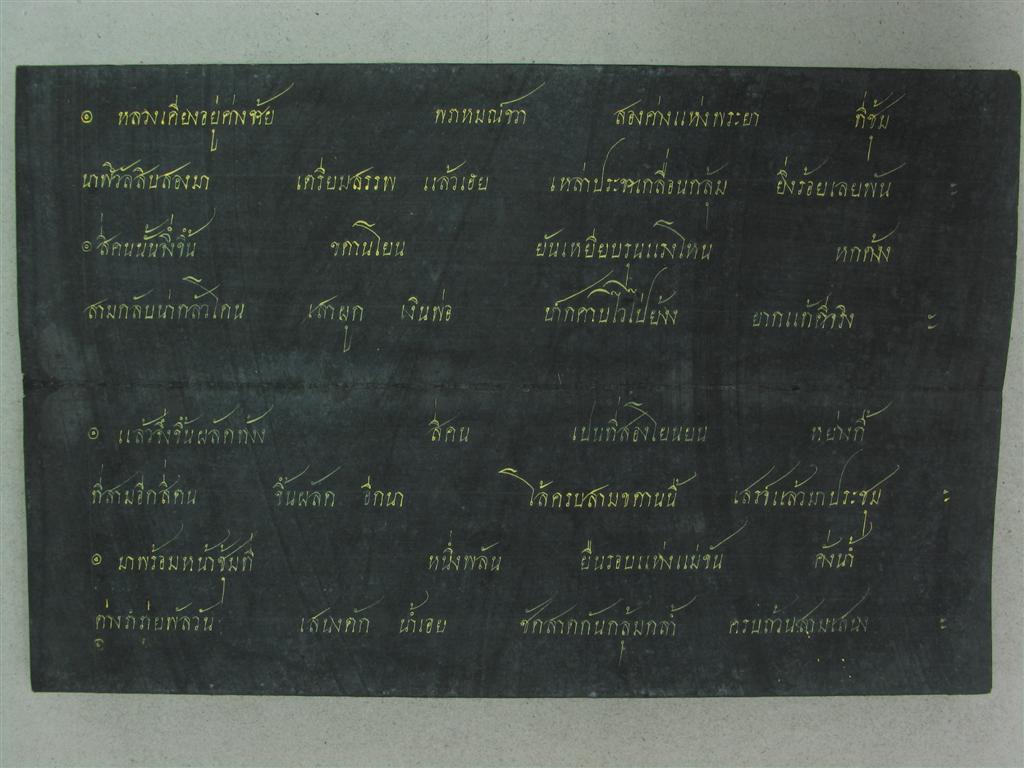 ๏ หลวงเคียงอยู่ค่างซ้าย พราหมณ์ขวา สองค่างแห่งพระยา ที่ชุ้ม
นาฬิวัลสิบสองมา เตรียมสรรพ แล้วเฮย เหล่าประชาเกลื่อนกลุ้ม ยิ่งร้อยเลยพัน ะ
๏ สี่คนนั้นจึ่งขึ้น ขดานโยน ยันเหยียบรนแรงโหน หกค้วง
สามกลับน่ากลัวโดน เสาผูก เงินพ่อ ปากคาบไว้ไป่ยั้ง ยากแท้ดีจริง ะ
๏ แล้วจึ่งขึ้นผลัดทั้ง สี่คน เป็นที่สองโยนยน หย่างกี้
ที่สามอีกสี่คน ขึ้นผลัด อีกนา โล้ครบสามขดานนี้ เสรจ์แล้วมาประชุม ะ
๏ มาพร้อมหน้าชุ้มที่ หนึ่งพลัน ยืนรอบแห่งแม่ขัน คั่งน้ำ
ต่างรำร่ายพัลวัน เสนงตัก น้ำเอย ซัดสาดกันกลุ้มกล้ำ ครบถ้วนสามเสนง ะ
๏